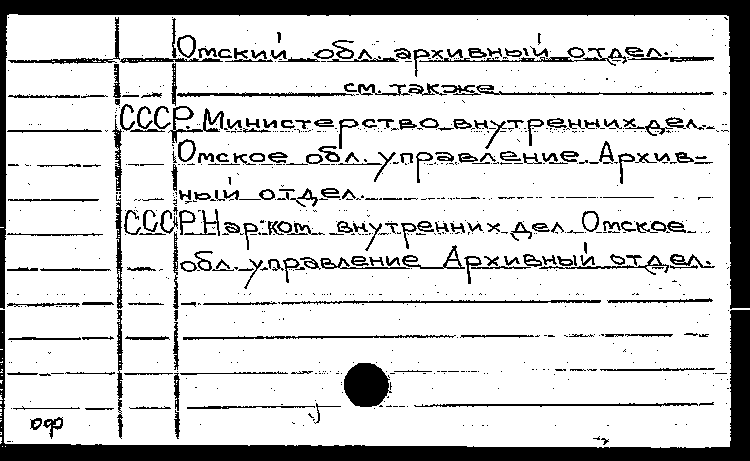 Омский обл. архивный отдел.
см. также
СССР. Министерство внутренних дел.
Омское обл. управление. Архив-
ный отдел.
СССР Нар. ком. внутренних дел. Омское
обл. управление Архивный отдел.